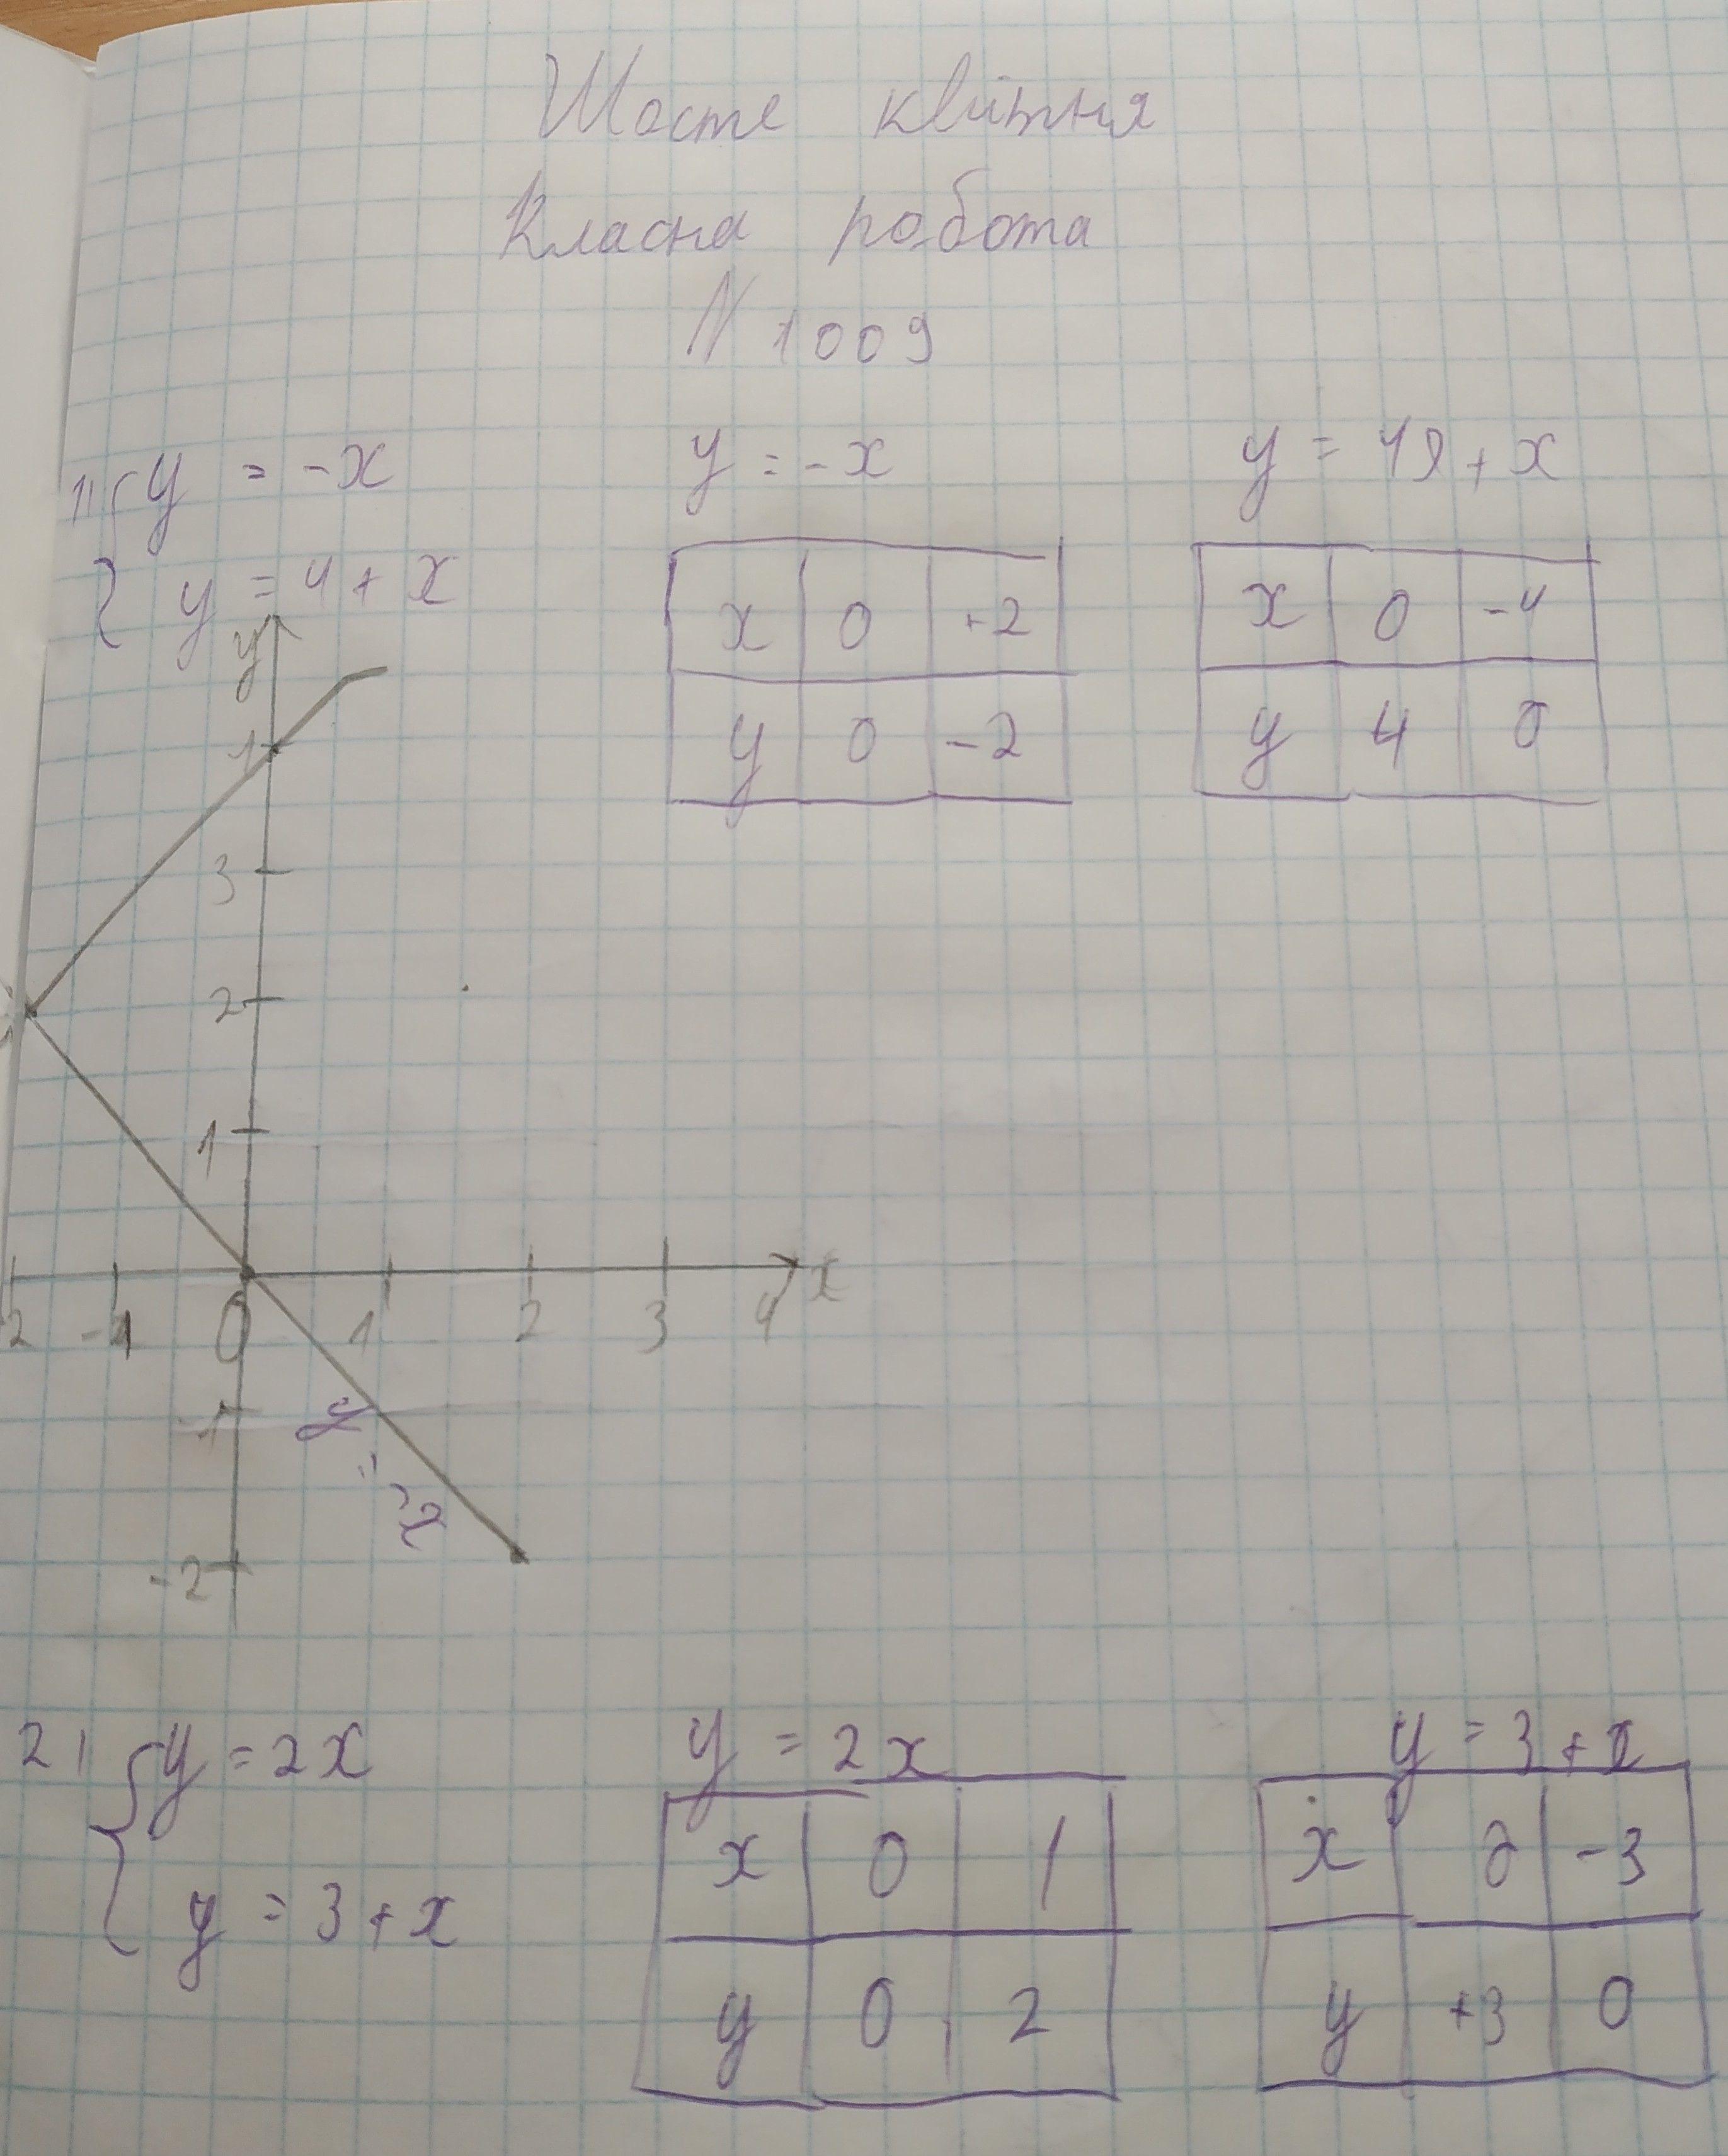 Шосте квітня
Класна робота
N 1009
1) { y = -x
y = 4 + x
y = -x
x 0 +2
y 0 -2
y = 4 + x
x 0 -4
y 4 0
y
3
2
1
-2 -1 0 1 2 3 4 x
-1
y = -x
-2
2) { y = 2x
y = 3 + x
y = 2x
x 0 1
y 0 2
y = 3 + x
x 0 -3
y +3 0